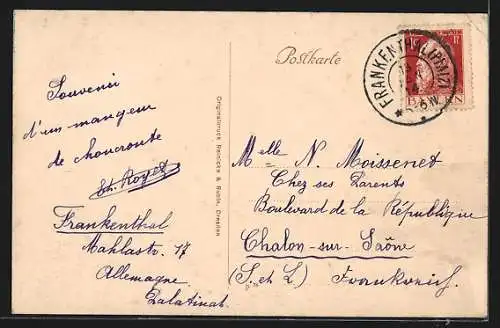 Postkarte
Souvenir
d'un mangeur
de choucroute
Ch. Royer
Frankenthal
Mahlastr. 17
Allemagne
Palatinat
Originaldruck Reinicke & Rubin, Dresden
FRANKENTHAL (PFALZ)
BAYERN
Melle N. Moissenet
Chez ses Parents
Boulevard de la République
Chalon-sur-Saône
(S. et L.) Frankreich